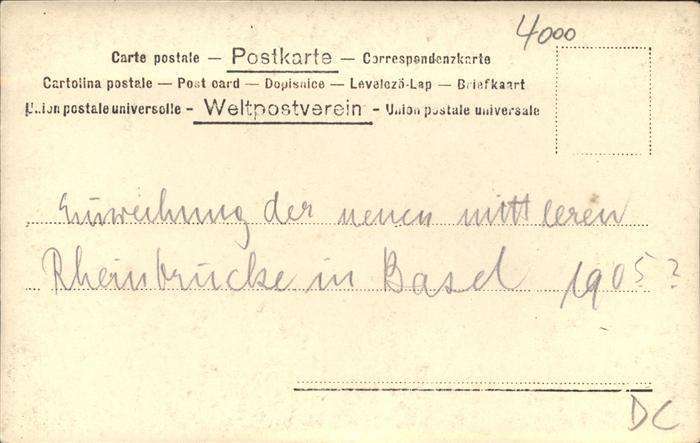 4000
Carte postale — Postkarte — Correspondenzkarte
Cartolina postale — Post card — Dopisnice — Levelező-Lap — Briefkaart
Union postale universelle - Weltpostverein - Union postale universale
Einweihung der neuen mittleren
Rheinbrücke in Basel 1905?
DC